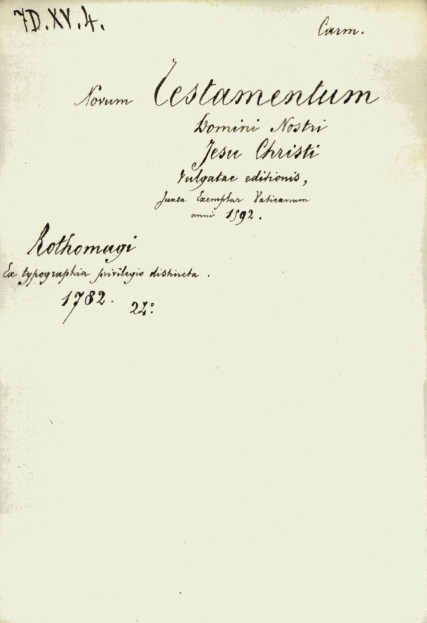 7D.XV.4.
Carm.
Novum Testamentum
Domini Nostri
Jesu Christi
Vulgatae editionis,
Juxta Exemplar Vaticanum
anni 1592.
Rothomagi
Ex typographia privilegio distincta.
1782.
24:º